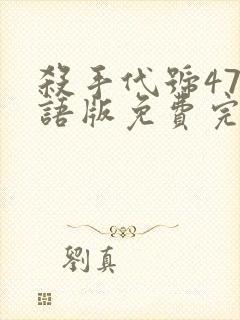 殺手代號47
語版免費完
劉真